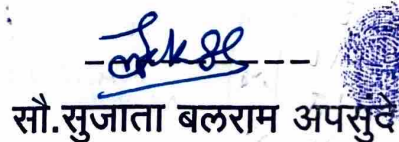 सौ.सुजाता बलराम अपसुंदे